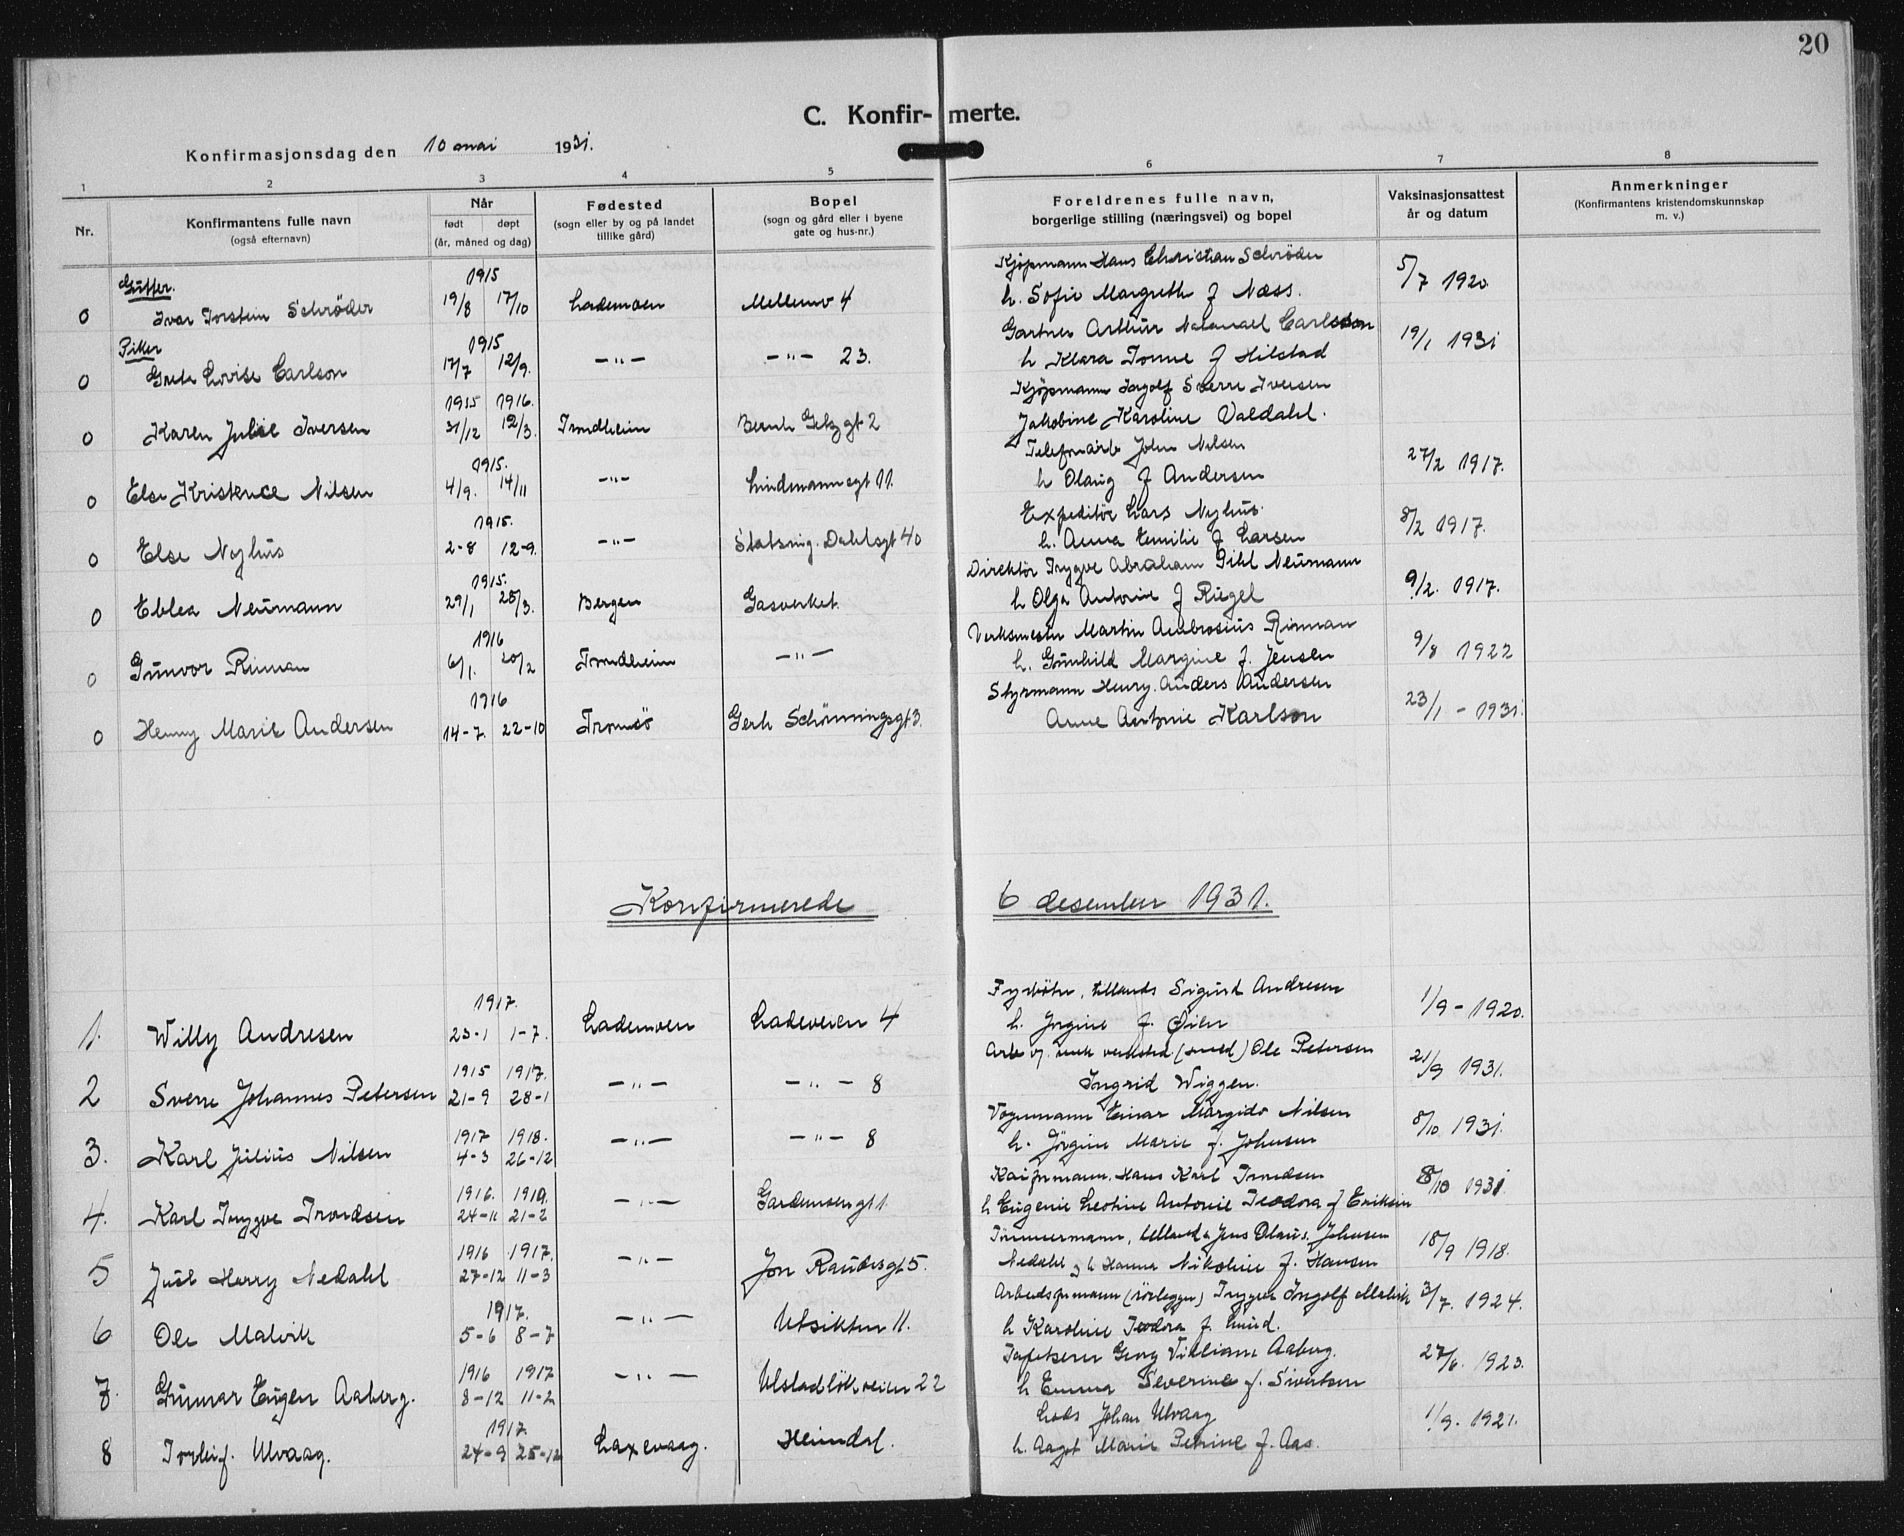 20
C. Konfirmerte.
Konfirmasjonsdag den 10 mai 1931.
1 2 3 4 5 6 7 8
Nr.
Konfirmantens fulle navn
(også efternavn)
Når
født døpt
(år, måned og dag)
Fødested
(sogn eller by og på landet
tillike gård)
Bopel
(sogn og gård eller i byene
gate og hus-nr.)
Foreldrenes fulle navn,
borgerlige stilling (næringsvei) og bopel
Vaksinasjonsattest
år og datum
Anmerkninger
(Konfirmantens kristendomskunnskap
m. v.)
Gutter.
1915
Kjøpmann Hans Christian Schrøder
0 Ivar Torstein Schrøder 19/8 17/10 Lademoen Mellemv 4 h. Sofie Margreth f Næss. 5/7 1920
Piker
1915
Gartner Arthur Natanael Carlsson
0 Grete Lovise Carlson 17/7 12/9. —"— —"— 23. h Klara Tomine f Hilstad 19/1 1931
1915 1916.
Kjøpmann Ingolf Sverre Iversen
0 Karen Julie Iversen 31/12 12/3. Trondheim Bernh Getz gt 2 Jakobine Karoline Valdahl.
1915.
Telefonarb John Nilsen
0 Else Kristence Nilsen 4/9. 14/11 —"— Lindemannsgt 11. h Olaug f Andersen 27/2 1917.
1915.
Expeditør Lars Nyhus.
0 Else Nyhus 2-8 12-9. —"— Statsmig. Dahlsgt 40 h. Anna Emilie f Larsen 8/2 1917.
1915.
Direktør Trygve Abraham Pihl Neumann
0 Eblea Neumann 29/1 28/3. Bergen Gasverket. h Olga Antonie f Riegel 9/2. 1917.
1916
Verksmester Martin Ambrosius Rinman
0 Gunvor Rinman 6/1. 20/2 Trondheim —"— h. Gunhild Margine f. Jensen 9/8 1922
1916
Styrmann Henry Anders Andersen
0 Henny Marie Andersen 14-7. 22-10 Tromsø Gerh Schønningsgt 3. Anne Antonie Karlson 23/1 - 1931.
Konfirmerede 6 desember 1931.
1917.
Fyrbøter, tillands Sigurd Andresen
1. Willy Andresen 23-1 1-7. Lademoen Ladeveien 4 h. Jorgine f. Øien 1/9 - 1920.
1915 1917.
Arb v/. mek verksted (smed) Ole Petersen
2 Sverre Johannes Petersen 21-9 28-1 —"— —"— 8 Ingrid Wiggen. 21/9 1931.
1917 1918.
Vognmann Einar Margido Nilsen
3. Karl Julius Nilsen 4-3 26-12 —"— —"— 8 h. Jørgine Marie f. Johnsen 8/10 1931.
1916. 1919.
Kaiformann, Hans Karl Trondsen
4. Karl Trygve Trondsen 24-11 21-2 —"— Gardemoengt 1. h Eugenie Leotine Antonie Teodora f Eriksen 8/10 1931.
1916 1917.
Tømmermann, tilland Jens Olaus Johnsen
5 Juul Harry Nedahl 27-12 11-3 —"— Jon Raudesgt 5. Nedahl og h Hanna Nikoline f. Hansen 18/9 1918.
1917.
Arbeidsformann (rørlegger) Trygve Ingolf Malvik
6 Ole Malvik 5-6 8-7 —"— Utsikten 11. h Karoline Teodora f. Lund. 3/7. 1924.
1916 1917
Tapetserer Georg Villiam Aaberg.
7. Gunnar Eugen Aaberg. 8-12 11-2 —"— Ulstadløkveien 22 h Emma Severine f. Sivertsen 27/6. 1923.
1917
Lods Johan Ulvaag
8 Torleif. Ulvaag. 24-9 25-12 Laxevaag. Heimdal. h. Aagot Marie Petrine f. Aas. 1/9. 1921.